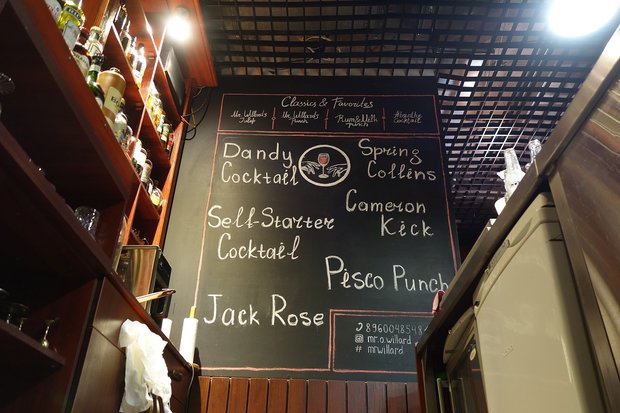 Classics & Favorites
Mr. Willard's
Julep
Mr. Willard's
Punch
Rum&Meth
punch
Absinthe
Cocktail
Dandy
Cocktail
Spring
Collins
Cameron
Kick
Self-Starter
Cocktail
Pisco Punch
Jack Rose
8960048548
mr.o.willard
# mrwillard